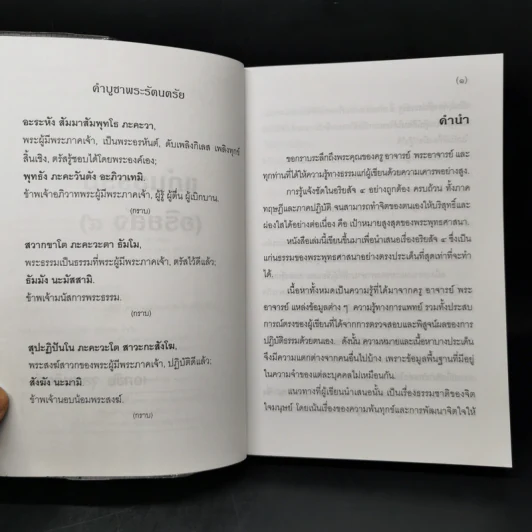 คำบูชาพระรัตนตรัย
อะระหัง สัมมาสัมพุทโธ ภะคะวา,
พระผู้มีพระภาคเจ้า, เป็นพระอรหันต์, ดับเพลิงกิเลส เพลิงทุกข์
สิ้นเชิง, ตรัสรู้ชอบได้โดยพระองค์เอง;
พุทธัง ภะคะวันตัง อะภิวาเทมิ.
ข้าพเจ้าอภิวาทพระผู้มีพระภาคเจ้า, ผู้รู้ ผู้ตื่น ผู้เบิกบาน.
(กราบ)
สวากขาโต ภะคะวะตา ธัมโม,
พระธรรมเป็นธรรมที่พระผู้มีพระภาคเจ้า, ตรัสไว้ดีแล้ว;
ธัมมัง นะมัสสามิ.
ข้าพเจ้านมัสการพระธรรม.
(กราบ)
สุปะฏิปันโน ภะคะวะโต สาวะกะสังโฆ,
พระสงฆ์สาวกของพระผู้มีพระภาคเจ้า, ปฏิบัติดีแล้ว;
สังฆัง นะมามิ
ข้าพเจ้านอบน้อมพระสงฆ์.
(กราบ)
(๑)
คำนำ
ขอกราบระลึกถึงพระคุณของครู อาจารย์ พระอาจารย์ และ
ทุกท่านที่ได้ให้ความรู้ทางธรรมแก่ผู้เขียนด้วยความเคารพอย่างสูง.
การรู้แจ้งชัดในอริยสัจ ๔ อย่างถูกต้อง ครบถ้วน ทั้งภาค
ทฤษฎีและภาคปฏิบัติ จนสามารถทำจิตของตนเองให้บริสุทธิ์และ
ผ่องใสได้อย่างต่อเนื่อง คือ เป้าหมายสูงสุดของพระพุทธศาสนา.
หนังสือเล่มนี้เขียนขึ้นมาเพื่อนำเสนอเรื่องอริยสัจ ๔ ซึ่งเป็น
แก่นธรรมของพระพุทธศาสนาอย่างตรงประเด็นที่สุดเท่าที่จะทำ
ได้.
เนื้อหาทั้งหมดเป็นความรู้ที่ได้มาจากครู อาจารย์ พระ
อาจารย์ แหล่งข้อมูลต่าง ๆ ความรู้ทางการแพทย์ รวมทั้งประสบ
การณ์ตรงของผู้เขียนที่ได้จากการตรวจสอบและพิสูจน์ผลของการ
ปฏิบัติธรรมด้วยตนเอง. ดังนั้น ความหมายและเนื้อหาบางประเด็น
จึงมีความแตกต่างจากคนอื่นไปบ้าง เพราะข้อมูลพื้นฐานที่มีอยู่
ในความจำของแต่ละบุคคลไม่เหมือนกัน.
แนวทางที่ผู้เขียนนำเสนอนั้น เป็นเรื่องธรรมชาติของจิต
ใจมนุษย์ โดยเน้นเรื่องของความพ้นทุกข์และการพัฒนาจิตใจให้